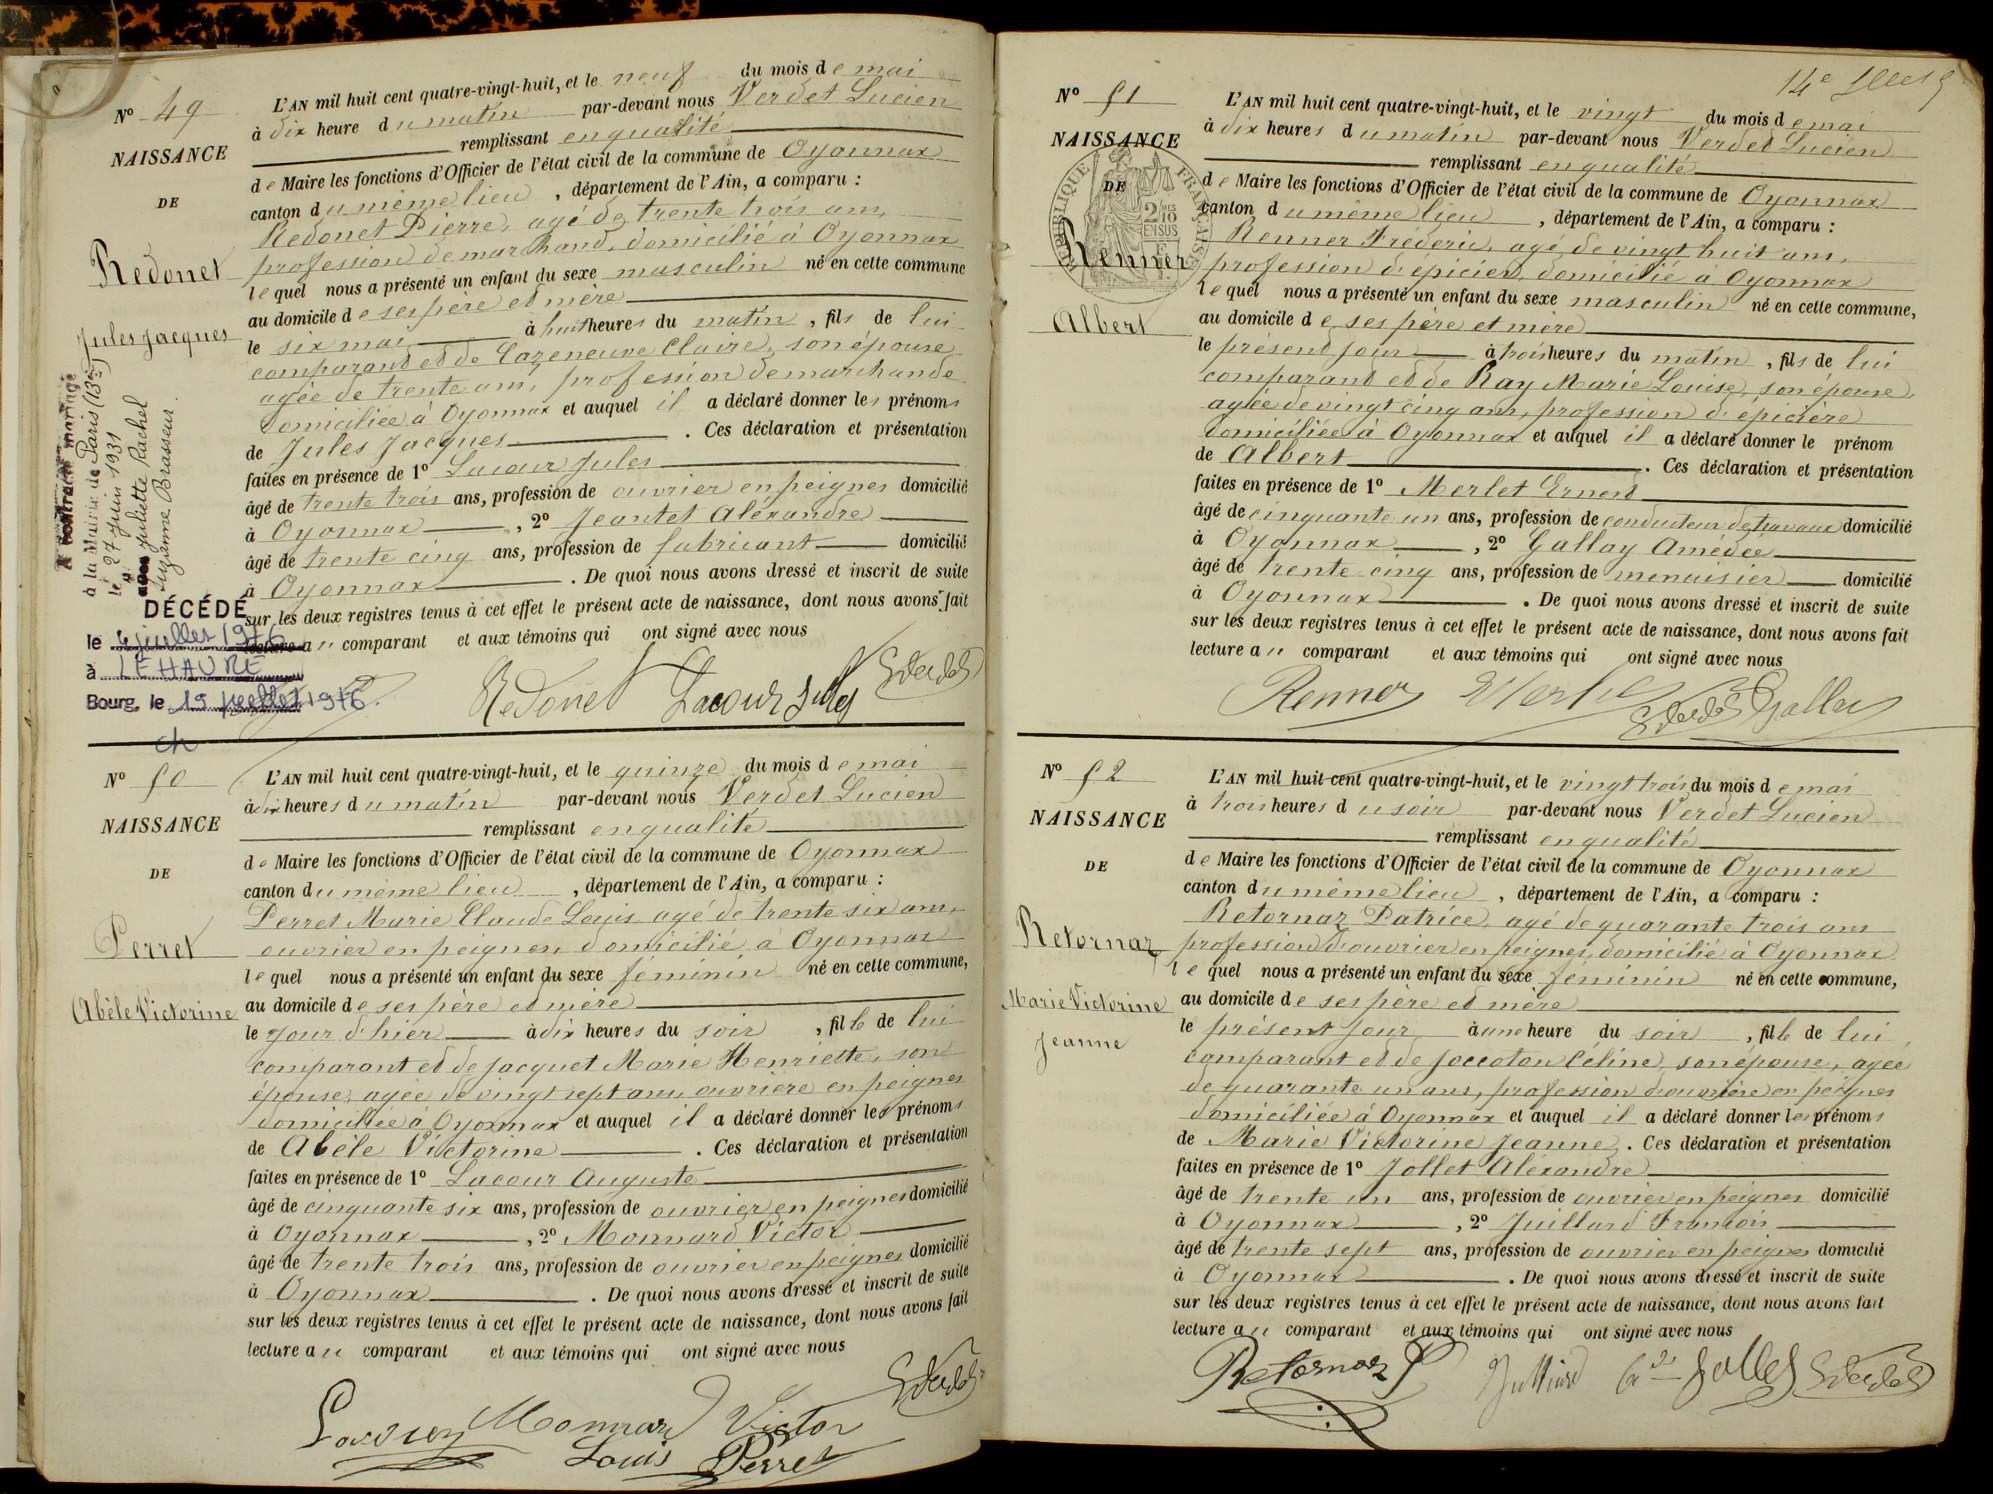 Nº 49
NAISSANCE
DE
Redonet
Jules Jacques
A contracté mariage
à la Mairie de Paris (13e)
le 27 juin 1931
avec Juliette Rachel
Suzanne Brasseur.
DÉCÉDÉ
le 4 juillet 1976
à LE HAVRE
Bourg, le 19 juillet 1976.
L'AN mil huit cent quatre-vingt-huit, et le neuf du mois de mai
à dix heure du matin par-devant nous Verdet Lucien
remplissant en qualité
de Maire les fonctions d'Officier de l'état civil de la commune de Oyonnax
canton du même lieu, département de l'Ain, a comparu :
Redonet Pierre, agé de trente trois ans,
profession de marchand, domicilié à Oyonnax
lequel nous a présenté un enfant du sexe masculin né en cette commune
au domicile de ses père et mère
le six mai à huit heures du matin, fils de lui
comparant et de Cazeneuve Claire, son épouse
agée de trente ans, profession de marchande
domiciliée à Oyonnax et auquel il a déclaré donner les prénoms
de Jules Jacques. Ces déclaration et présentation
faites en présence de 1º Lacour Jules
âgé de trente trois ans, profession de ouvrier en peignes domicilié
à Oyonnax, 2º Jeantet Aléxandre
âgé de trente cinq ans, profession de fabricant domicilié
à Oyonnax. De quoi nous avons dressé et inscrit de suite
sur les deux registres tenus à cet effet le présent acte de naissance, dont nous avons fait
lecture au comparant et aux témoins qui ont signé avec nous
Redonet Lacour Jules
Nº 50
NAISSANCE
DE
Perret
Abèle Victorine
L'AN mil huit cent quatre-vingt-huit, et le quinze du mois de mai
à dix heures du matin par-devant nous Verdet Lucien
remplissant en qualité
de Maire les fonctions d'Officier de l'état civil de la commune de Oyonnax
canton du même lieu, département de l'Ain, a comparu :
Perret Marie Claude Louis agé de trente six ans,
ouvrier en peignes, domicilié à Oyonnax
lequel nous a présenté un enfant du sexe féminin né en cette commune,
au domicile de ses père et mère
le jour d'hier à dix heures du soir, fille de lui
comparant et de Jacquet Marie Henriette, son
épouse, agée de vingt sept ans, ouvrière en peignes
domiciliée à Oyonnax et auquel il a déclaré donner les prénoms
de Abèle Victorine. Ces déclaration et présentation
faites en présence de 1º Lacour Auguste
âgé de cinquante six ans, profession de ouvrier en peignes domicilié
à Oyonnax, 2º Monnard Victor
âgé de trente trois ans, profession de ouvrier en peignes domicilié
à Oyonnax. De quoi nous avons dressé et inscrit de suite
sur les deux registres tenus à cet effet le présent acte de naissance, dont nous avons fait
lecture au comparant et aux témoins qui ont signé avec nous
Monnard Victor
Louis Perret
14e
Nº 51
NAISSANCE
DE
RÉPUBLIQUE FRANÇAISE
Renner
Albert
L'AN mil huit cent quatre-vingt-huit, et le vingt du mois de mai
à dix heures du matin par-devant nous Verdet Lucien
remplissant en qualité
de Maire les fonctions d'Officier de l'état civil de la commune de Oyonnax
canton du même lieu, département de l'Ain, a comparu :
Renner Fréderic, agé de vingt huit ans,
profession d'épicier, domicilié à Oyonnax
lequel nous a présenté un enfant du sexe masculin né en cette commune,
au domicile de ses père et mère
le présent jour à trois heures du matin, fils de lui
comparant et de Ray Marie Louise, son épouse,
agée de vingt cinq ans, profession d'épicière
domiciliée à Oyonnax et auquel il a déclaré donner le prénom
de Albert. Ces déclaration et présentation
faites en présence de 1º Merlet Ernest
âgé de cinquante un ans, profession de conducteur de travaux domicilié
à Oyonnax, 2º Gallay Amédée
âgé de trente cinq ans, profession de menuisier domicilié
à Oyonnax. De quoi nous avons dressé et inscrit de suite
sur les deux registres tenus à cet effet le présent acte de naissance, dont nous avons fait
lecture au comparant et aux témoins qui ont signé avec nous
Renner
Nº 52
NAISSANCE
DE
Retornaz
Marie Victorine
Jeanne
L'AN mil huit cent quatre-vingt-huit, et le vingt trois du mois de mai
à trois heures du soir par-devant nous Verdet Lucien
remplissant en qualité
de Maire les fonctions d'Officier de l'état civil de la commune de Oyonnax
canton du même lieu, département de l'Ain, a comparu :
Retornaz Patrice, agé de quarante trois ans
profession d'ouvrier en peignes, domicilié à Oyonnax
lequel nous a présenté un enfant du sexe féminin né en cette commune,
au domicile de ses père et mère
le présent jour à une heure du soir, fille de lui
comparant et de Joccoton Céline, son épouse, agée
de quarante un ans, profession d'ouvrière en peignes
domiciliée à Oyonnax et auquel il a déclaré donner les prénoms
de Marie Victorine Jeanne. Ces déclaration et présentation
faites en présence de 1º Jollet Aléxandre
âgé de trente un ans, profession de ouvrier en peignes domicilié
à Oyonnax, 2º Juillard Francois
âgé de trente sept ans, profession de ouvrier en peignes domicilié
à Oyonnax. De quoi nous avons dressé et inscrit de suite
sur les deux registres tenus à cet effet le présent acte de naissance, dont nous avons fait
lecture au comparant et aux témoins qui ont signé avec nous
Retornaz P